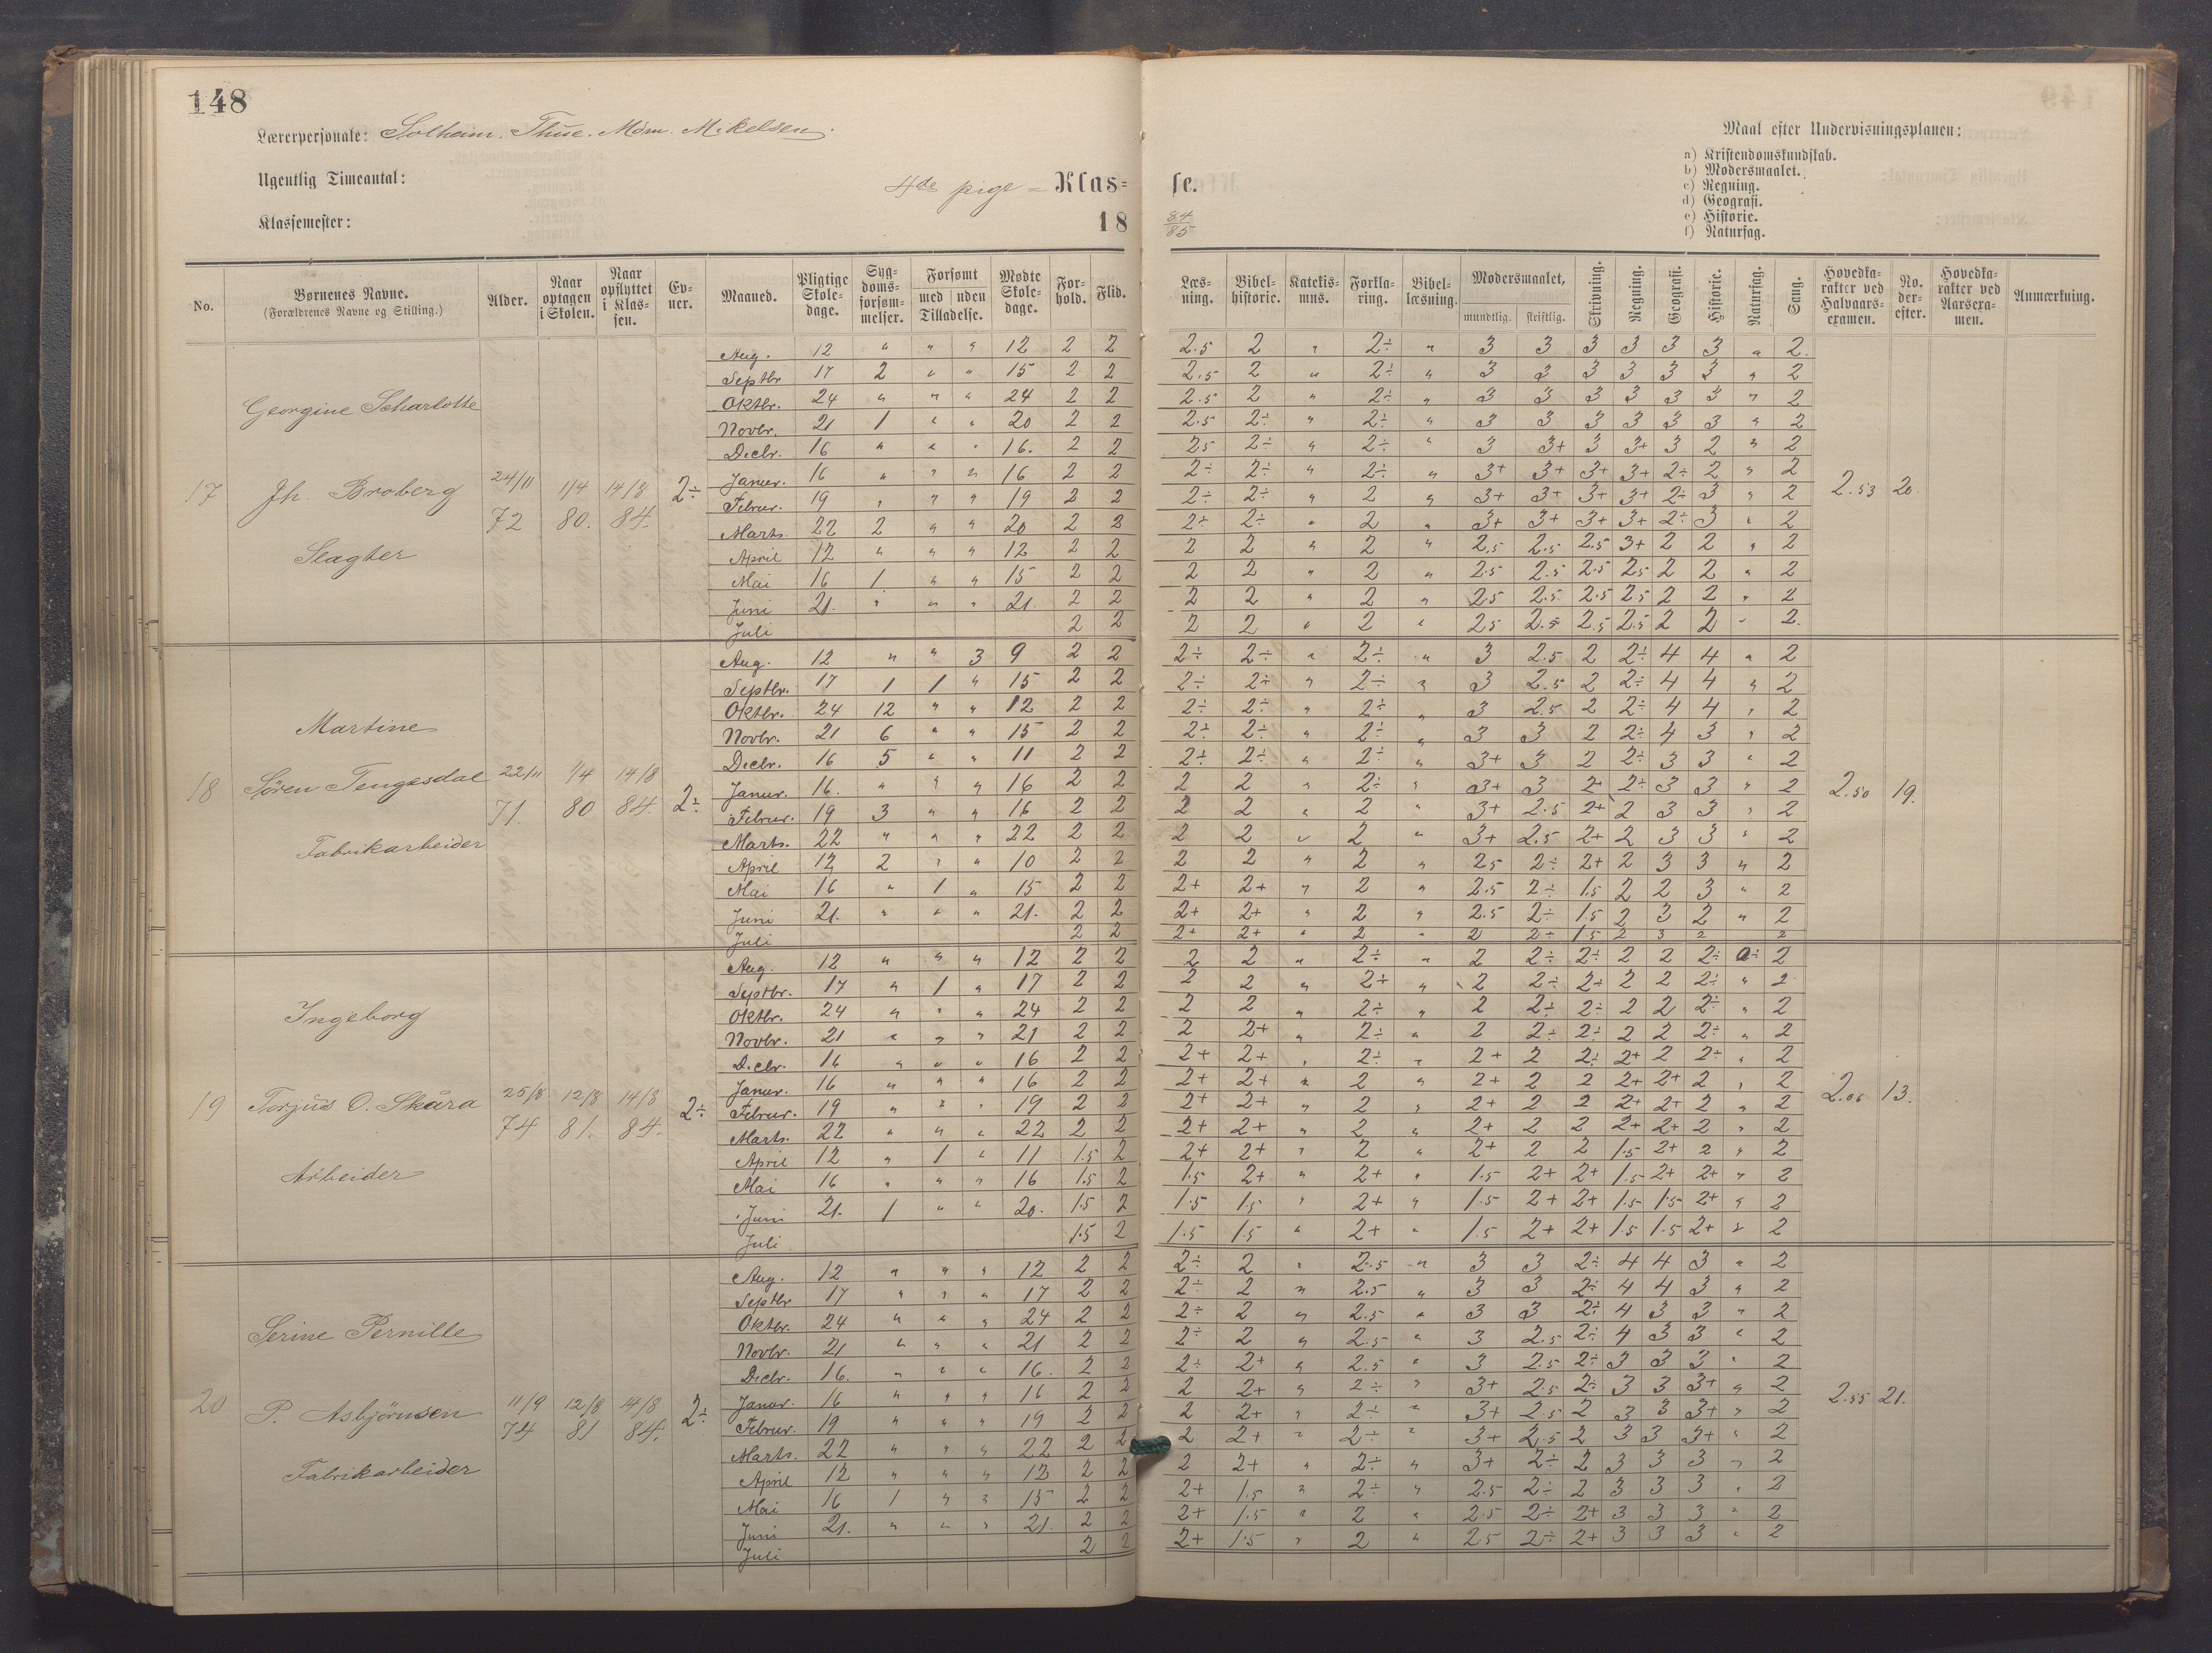 148
Lærerpersonale: Solheim. Thue. Mdm. Mikelsen.
Ugentlig Timeantal:
Klassemester:
4de pige= Klas=se.
18 84/85
Maal efter Undervisningsplanen:
a) Kristendomskundskab.
b) Modersmaalet.
c) Regning.
d) Geografi.
e) Historie.
f) Naturfag.
No. | Børnenes Navne. (Forældrenes Navne og Stilling.) | Alder. | Naar optagen i Skolen. | Naar opflyttet i Klassen. | Evner. | Maaned. | Pligtige Skoledage. | Sygdomsforsømmelser. | Forsømt med Tilladelse. | uden Tilladelse. | Mødte Skoledage. | Forhold. | Flid. | Læsning. | Bibelhistorie. | Katekismus. | Forklaring. | Bibellæsning. | Modersmaalet, mundtlig. | skriftlig. | Skrivning. | Regning. | Geografi. | Historie. | Naturfag. | Sang. | Hovedkarakter ved Halvaarsexamen. | No. derefter. | Hovedkarakter ved Aarsexamen. | Anmærkning.
17 Georgine Scharlotte
Jh. Broberg
Slagter
24/11 72 | 1/4 80. | 14/8 84. | 2÷ | 2.53 | 20.
Aug. 12 " " " 12 2 2 2.5 2 " 2÷ " 3 3 3 3 3 3 " 2.
Septbr 17 2 " " 15 2 2 2.5 2 " 2÷ " 3 3 3 3 3 3 " 2
Oktbr. 24 " " " 24 2 2 2.5 2 " 2÷ " 3 3 3 3 3 3 " 2
Novbr. 21 1 " " 20 2 2 2.5 2÷ " 2÷ " 3 3 3 3 3 3 " 2
Decbr. 16 " " " 16. 2 2 25 2÷ " 2÷ " 3 3+ 3 3+ 3 2 " 2
Januar. 16 " " " 16 2 2 2÷ 2÷ " 2÷ " 3+ 3+ 3+ 3+ 2÷ 2 " 2
Februar. 19 " " " 19 2 2 2÷ 2÷ " 2 " 3+ 3+ 3+ 3+ 2÷ 3 " 2
Marts. 22 2 " " 20 2 2 2÷ 2÷ " 2 " 3+ 3+ 3+ 3+ 2÷ 3 " 2
April 12 " " " 12 2 2 2 2 " 2 " 2.5 2.5 2.5 3+ 2 2 " 2
Mai 16 1 " " 15 2 2 2 2 " 2 " 2.5 2.5 2.5 2.5 2 2 " 2
Juni 21. " " " 21. 2 2 2 2 " 2 " 2.5 2.5 2.5 2.5 2 2 " 2
Juli 2 2 2 2 " 2 " 25 2.5 2.5 2.5 2 2 " 2.
18 Martine
Sören Tengesdal
Fabrikarbeider
22/11 71. | 1/4 80 | 14/8 84. | 2÷ | 2.50 | 19.
Aug. 12 " " 3 9 2 2 2÷ 2÷ " 2÷ " 3 2.5 2 2÷ 4 4 " 2
Septbr. 17 1 1 " 15 2 2 2÷ 2÷ " 2÷ " 3 2.5 2 2÷ 4 4 " 2
Oktbr. 24 12 " " 12 2 2 2÷ 2÷ " 2÷ " 3 2.5 2 2÷ 4 4 " 2
Novbr. 21 6 " " 15 2 2 2÷ 2÷ " 2÷ " 3 3 2 2÷ 4 3 " 2
Decbr. 16 5 " " 11 2 2 2÷ 2÷ " 2÷ " 3+ 3 2 2÷ 3 3 " 2
Januar. 16. " " " 16 2 2 2 2 " 2÷ " 3+ 3 2+ 2÷ 3 3 " 2
Februar. 19 3 " " 16 2 2 2 2 " 2 " 3+ 2.5 2+ 2 3 3 " 2
Marts. 22 " " " 22 2 2 2 2 " 2 " 3+ 2.5 2+ 2 3 3 " 2
April 12 2 " " 10 2 2 2 2 " 2 " 25 2÷ 2+ 2 3 3 " 2
Mai 16 " 1 " 15 2 2 2+ 2+ " 2 " 2.5 2÷ 1.5 2 2 3 " 2
Juni 21. " " " 21. 2 2 2+ 2+ " 2 " 2.5 2÷ 1.5 2 3 2 " 2
Juli 2 2 2+ 2+ " 2 " 2 2÷ 1.5 2 3 2 2
19 Ingeborg
Torjus O. Skåra
Arbeider
25/8 74 | 12/8 81. | 14/8 84. | 2÷ | 2.06 | 13.
Aug. 12 " " " 12 2 2 2 2 " 2÷ " 2 2÷ 2÷ 2 2 2÷ ÷ 2
Septbr. 17 " 1 " 17 2 2 2 2 " 2+ " 2 2÷ 2÷ 2 2 2÷ " 2
Oktbr. 24 " " " 24 2 2 2 2 " 2÷ " 2 2÷ 2÷ 2 2 2÷ " 2
Novbr. 21 " " " 21 2 2 2 2+ " 2÷ " 2 2÷ 2÷ 2 2 2÷ " 2
Decbr. 16 " " " 16 2 2 2+ 2+ " 2÷ " 2+ 2 2÷ 2+ 2 2÷ " 2
Januar. 16 " " " 16 2 2 2+ 2+ " 2 " 2+ 2 2 2+ 2+ 2 " 2
Februar. 19 " " " 19 2 2 2+ 2+ " 2 " 2+ 2 2 2+ 2+ 2 " 2
Marts. 22 " " " 22 2 2 2+ 2+ " 2 " 2+ 2 2 2+ 2+ 2 " 2
April 12 " 1 " 11 1.5 2 2+ 2+ " 2 " 2+ 2 2 1.5 2+ 2 " 2
Mai 16 " " " 16 1.5 2 1.5 2+ " 2+ " 1.5 2+ 2+ 1.5 2+ 2+ " 2
Juni 21. 1 " " 20. 1.5 2 1.5 1.5 " 2+ " 1.5 2+ 2+ 1.5 1.5 2+ " 2
Juli 1.5 2 1.5 1.5 " 2+ " 1.5 2+ 2+ 1.5 1.5 2+ " 2
20 Serine Pernille
P. Asbjörnsen
Fabrikarbeider
11/9 74 | 12/8 81 | 14/8 84. | 2÷ | 2.55 | 21.
Aug. 12 " " " 12 2 2 2÷ 2 " 2.5 " 3 3 2÷ 4 4 3 " 2
Septbr 17 " " " 17 2 2 2÷ 2 " 2.5 " 3 3 2÷ 4 4 3 " 2
Oktbr. 24 " " " 24 2 2 2÷ 2 " 2.5 " 3 3 2÷ 4 3 3 " 2
Novbr. 21 " " " 21 2 2 2÷ 2 " 2.5 " 3 2.5 2÷ 4 3 3 " 2
Decbr. 16. " " " 16. 2 2 2÷ 2+ " 2.5 " 3 2.5 2÷ 3 3 3 " 2
Januar. 16 " " " 16 2 2 2 2+ " 2÷ " 3+ 2.5 2÷ 3 3 3+ " 2
Februar. 19 " " " 19 2 2 2 2+ " 2÷ " 3+ 2.5 2 3 3 3+ " 2
Marts. 22 " " " 22 2 2 2 2+ " 2÷ " 3+ 2.5 2 3 3 3+ " 2
April 12 " " " 12 2 2 2 2+ " 2÷ " 3+ 2÷ 2 3 3 3 " 2
Mai 16 1 " " 15 2 2 2+ 1.5 " 2÷ " 2.5 2÷ 2 3 3 3 " 2
Juni 21. " " " 21. 2 2 2+ 1.5 " 2 " 2.5 2÷ 2+ 3 3 3 " 2
Juli 2 2 2+ 1.5 " 2 " 25 2÷ 2+ 3 3 3 " 2